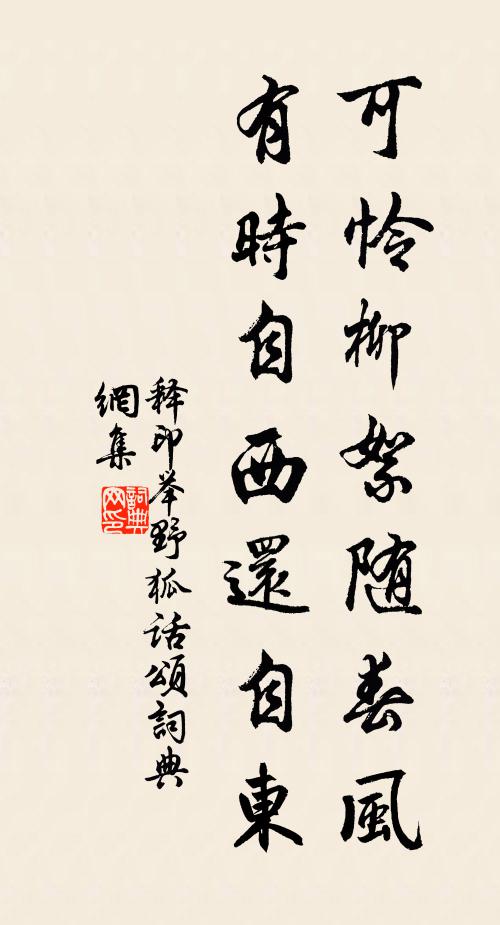 可怜柳絮随春風
有時自西還自東
释印举野狐话頌詞典
網集
詞典
网印